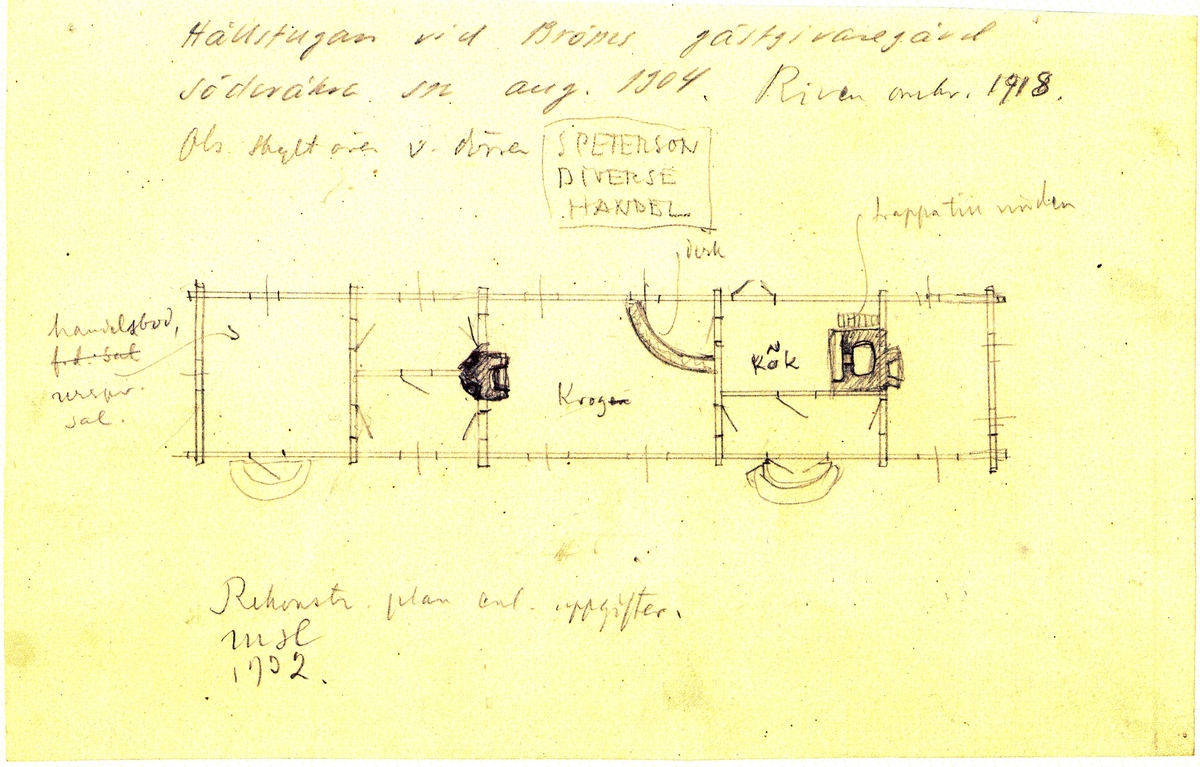 Hällstugan vid Bröms gästgivaregård
Söderåkra sn aug. 1904. Riven omkr. 1918.
Obs skylt över v. dörren
S PETERSON
DIVERSE
HANDEL
trappa till vinden
disk
handelsbod,
f.d. sal
urspr.
sal.
Krogen
Kök
Rekonstr. plan enl. uppgifter.
1932.